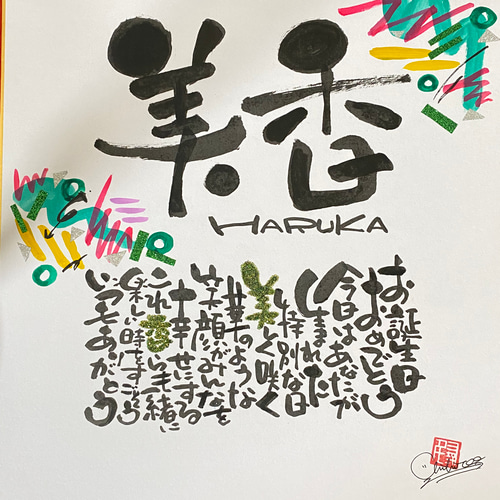 美香
HARUKA
お誕生日
おめでとう
今日はあなたが
生まれた
特別な日
美しく咲く
華のような
笑顔がみんなを
幸せにする
これ香い一緒に
楽しい時をすごそう
いつもありがとう